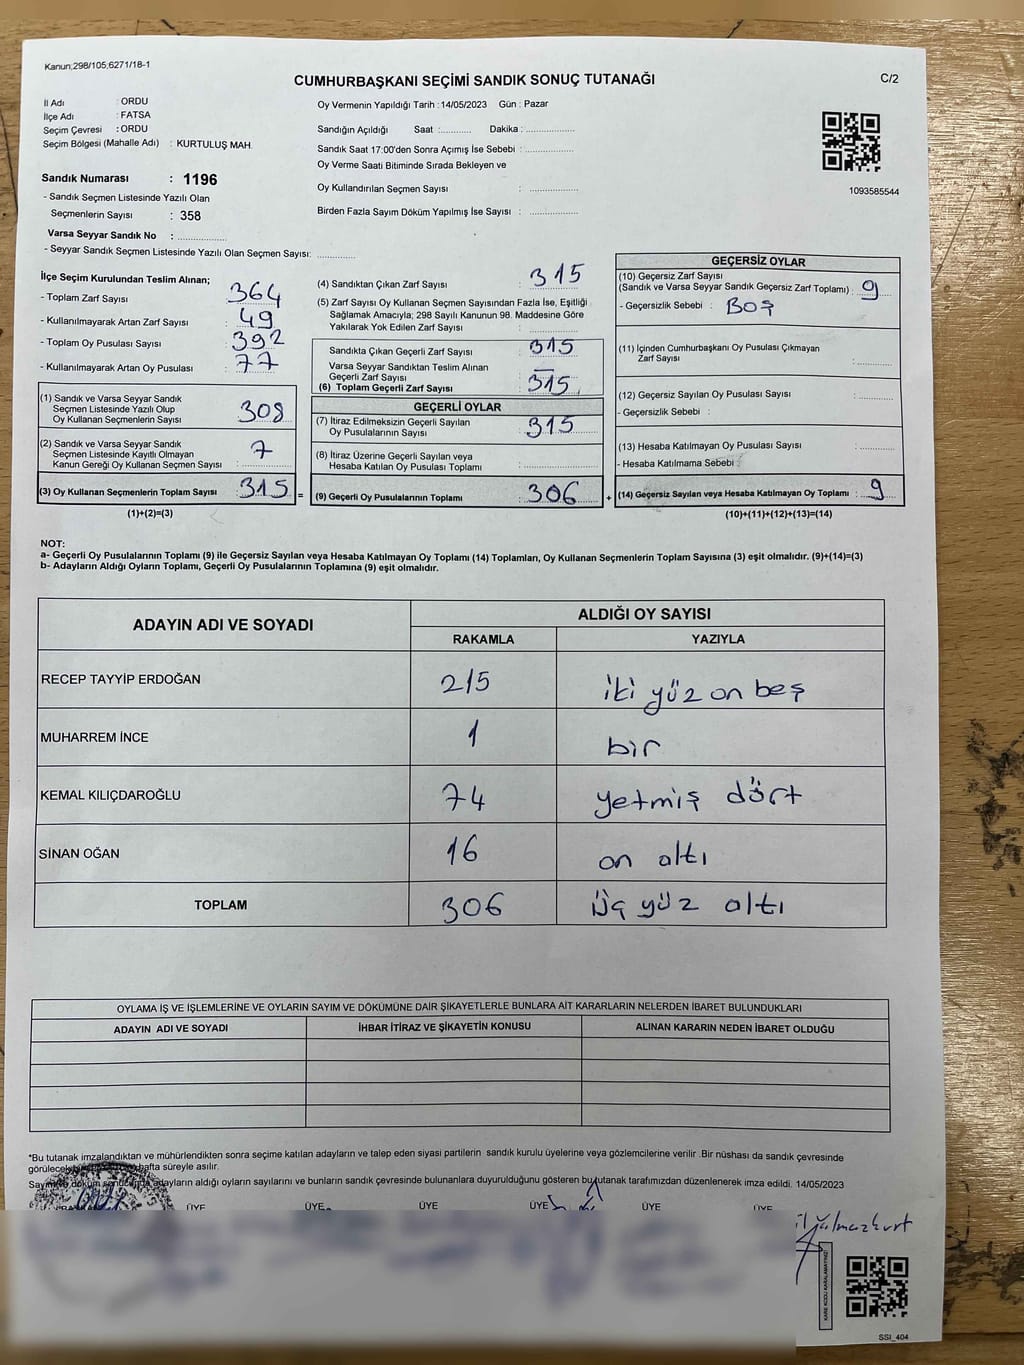 Kanun;298/105;6271/18-1
CUMHURBAŞKANI SEÇİMİ SANDIK SONUÇ TUTANAĞI
C/2
İl Adı : ORDU
İlçe Adı : FATSA
Seçim Çevresi : ORDU
Seçim Bölgesi (Mahalle Adı) : KURTULUŞ MAH.
Sandık Numarası : 1196
- Sandık Seçmen Listesinde Yazılı Olan
Seçmenlerin Sayısı : 358
Varsa Seyyar Sandık No : ..............
- Seyyar Sandık Seçmen Listesinde Yazılı Olan Seçmen Sayısı: ............
Oy Vermenin Yapıldığı Tarih : 14/05/2023 Gün : Pazar
Sandığın Açıldığı Saat :........... Dakika : ...............
Sandık Saat 17:00'den Sonra Açımış İse Sebebi : ...............
Oy Verme Saati Bitiminde Sırada Bekleyen ve
Oy Kullandırılan Seçmen Sayısı : ...............
Birden Fazla Sayım Döküm Yapılmış İse Sayısı : ...............
1093585544
İlçe Seçim Kurulundan Teslim Alınan;
- Toplam Zarf Sayısı : 364
- Kullanılmayarak Artan Zarf Sayısı : 49
- Toplam Oy Pusulası Sayısı : 392
- Kullanılmayarak Artan Oy Pusulası : 77
(1) Sandık ve Varsa Seyyar Sandık
Seçmen Listesinde Yazılı Olup
Oy Kullanan Seçmenlerin Sayısı : 308
(2) Sandık ve Varsa Seyyar Sandık
Seçmen Listesinde Kayıtlı Olmayan
Kanun Gereği Oy Kullanan Seçmen Sayısı : 7
(3) Oy Kullanan Seçmenlerin Toplam Sayısı : 315 =
(1)+(2)=(3)
(4) Sandıktan Çıkan Zarf Sayısı : 315
(5) Zarf Sayısı Oy Kullanan Seçmen Sayısından Fazla İse, Eşitliği
Sağlamak Amacıyla; 298 Sayılı Kanunun 98. Maddesine Göre
Yakılarak Yok Edilen Zarf Sayısı : ...............
Sandıkta Çıkan Geçerli Zarf Sayısı : 315
Varsa Seyyar Sandıktan Teslim Alınan
Geçerli Zarf Sayısı : —
(6) Toplam Geçerli Zarf Sayısı : 315
GEÇERLİ OYLAR
(7) İtiraz Edilmeksizin Geçerli Sayılan
Oy Pusulalarının Sayısı : 315
(8) İtiraz Üzerine Geçerli Sayılan veya
Hesaba Katılan Oy Pusulası Toplamı : ...............
(9) Geçerli Oy Pusulalarının Toplamı : 306 +
GEÇERSİZ OYLAR
(10) Geçersiz Zarf Sayısı
(Sandık ve Varsa Seyyar Sandık Geçersiz Zarf Toplamı) : 9
- Geçersizlik Sebebi : BOŞ
(11) İçinden Cumhurbaşkanı Oy Pusulası Çıkmayan
Zarf Sayısı : ...........
(12) Geçersiz Sayılan Oy Pusulası Sayısı : ...........
- Geçersizlik Sebebi :
(13) Hesaba Katılmayan Oy Pusulası Sayısı : ...........
- Hesaba Katılmama Sebebi :
(14) Geçersiz Sayılan veya Hesaba Katılmayan Oy Toplamı : 9
(10)+(11)+(12)+(13)=(14)
NOT:
a- Geçerli Oy Pusulalarının Toplamı (9) ile Geçersiz Sayılan veya Hesaba Katılmayan Oy Toplamı (14) Toplamları, Oy Kullanan Seçmenlerin Toplam Sayısına (3) eşit olmalıdır. (9)+(14)=(3)
b- Adayların Aldığı Oyların Toplamı, Geçerli Oy Pusulalarının Toplamına (9) eşit olmalıdır.
ADAYIN ADI VE SOYADI ALDIĞI OY SAYISI
RAKAMLA YAZIYLA
RECEP TAYYİP ERDOĞAN 215 iki yüz on beş
MUHARREM İNCE 1 bir
KEMAL KILIÇDAROĞLU 74 yetmiş dört
SİNAN OĞAN 16 on altı
TOPLAM 306 üç yüz altı
OYLAMA İŞ VE İŞLEMLERİNE VE OYLARIN SAYIM VE DÖKÜMÜNE DAİR ŞİKAYETLERLE BUNLARA AİT KARARLARIN NELERDEN İBARET BULUNDUKLARI
ADAYIN ADI VE SOYADI İHBAR İTİRAZ VE ŞİKAYETİN KONUSU ALINAN KARARIN NEDEN İBARET OLDUĞU
*Bu tutanak imzalandıktan ve mühürlendikten sonra seçime katılan adayların ve talep eden siyasi partilerin sandık kurulu üyelerine veya gözlemcilerine verilir .Bir nüshası da sandık çevresinde
görülecek hafta süreyle asılır.
adayların aldığı oyların sayılarını ve bunların sandık çevresinde bulunanlara duyurulduğunu gösteren bu tutanak tarafımızdan düzenlenerek imza edildi. 14/05/2023
ÜYE ÜYE ÜYE ÜYE ÜYE ÜYE
KARE KODU KARALAMAYINIZ
SSI_404